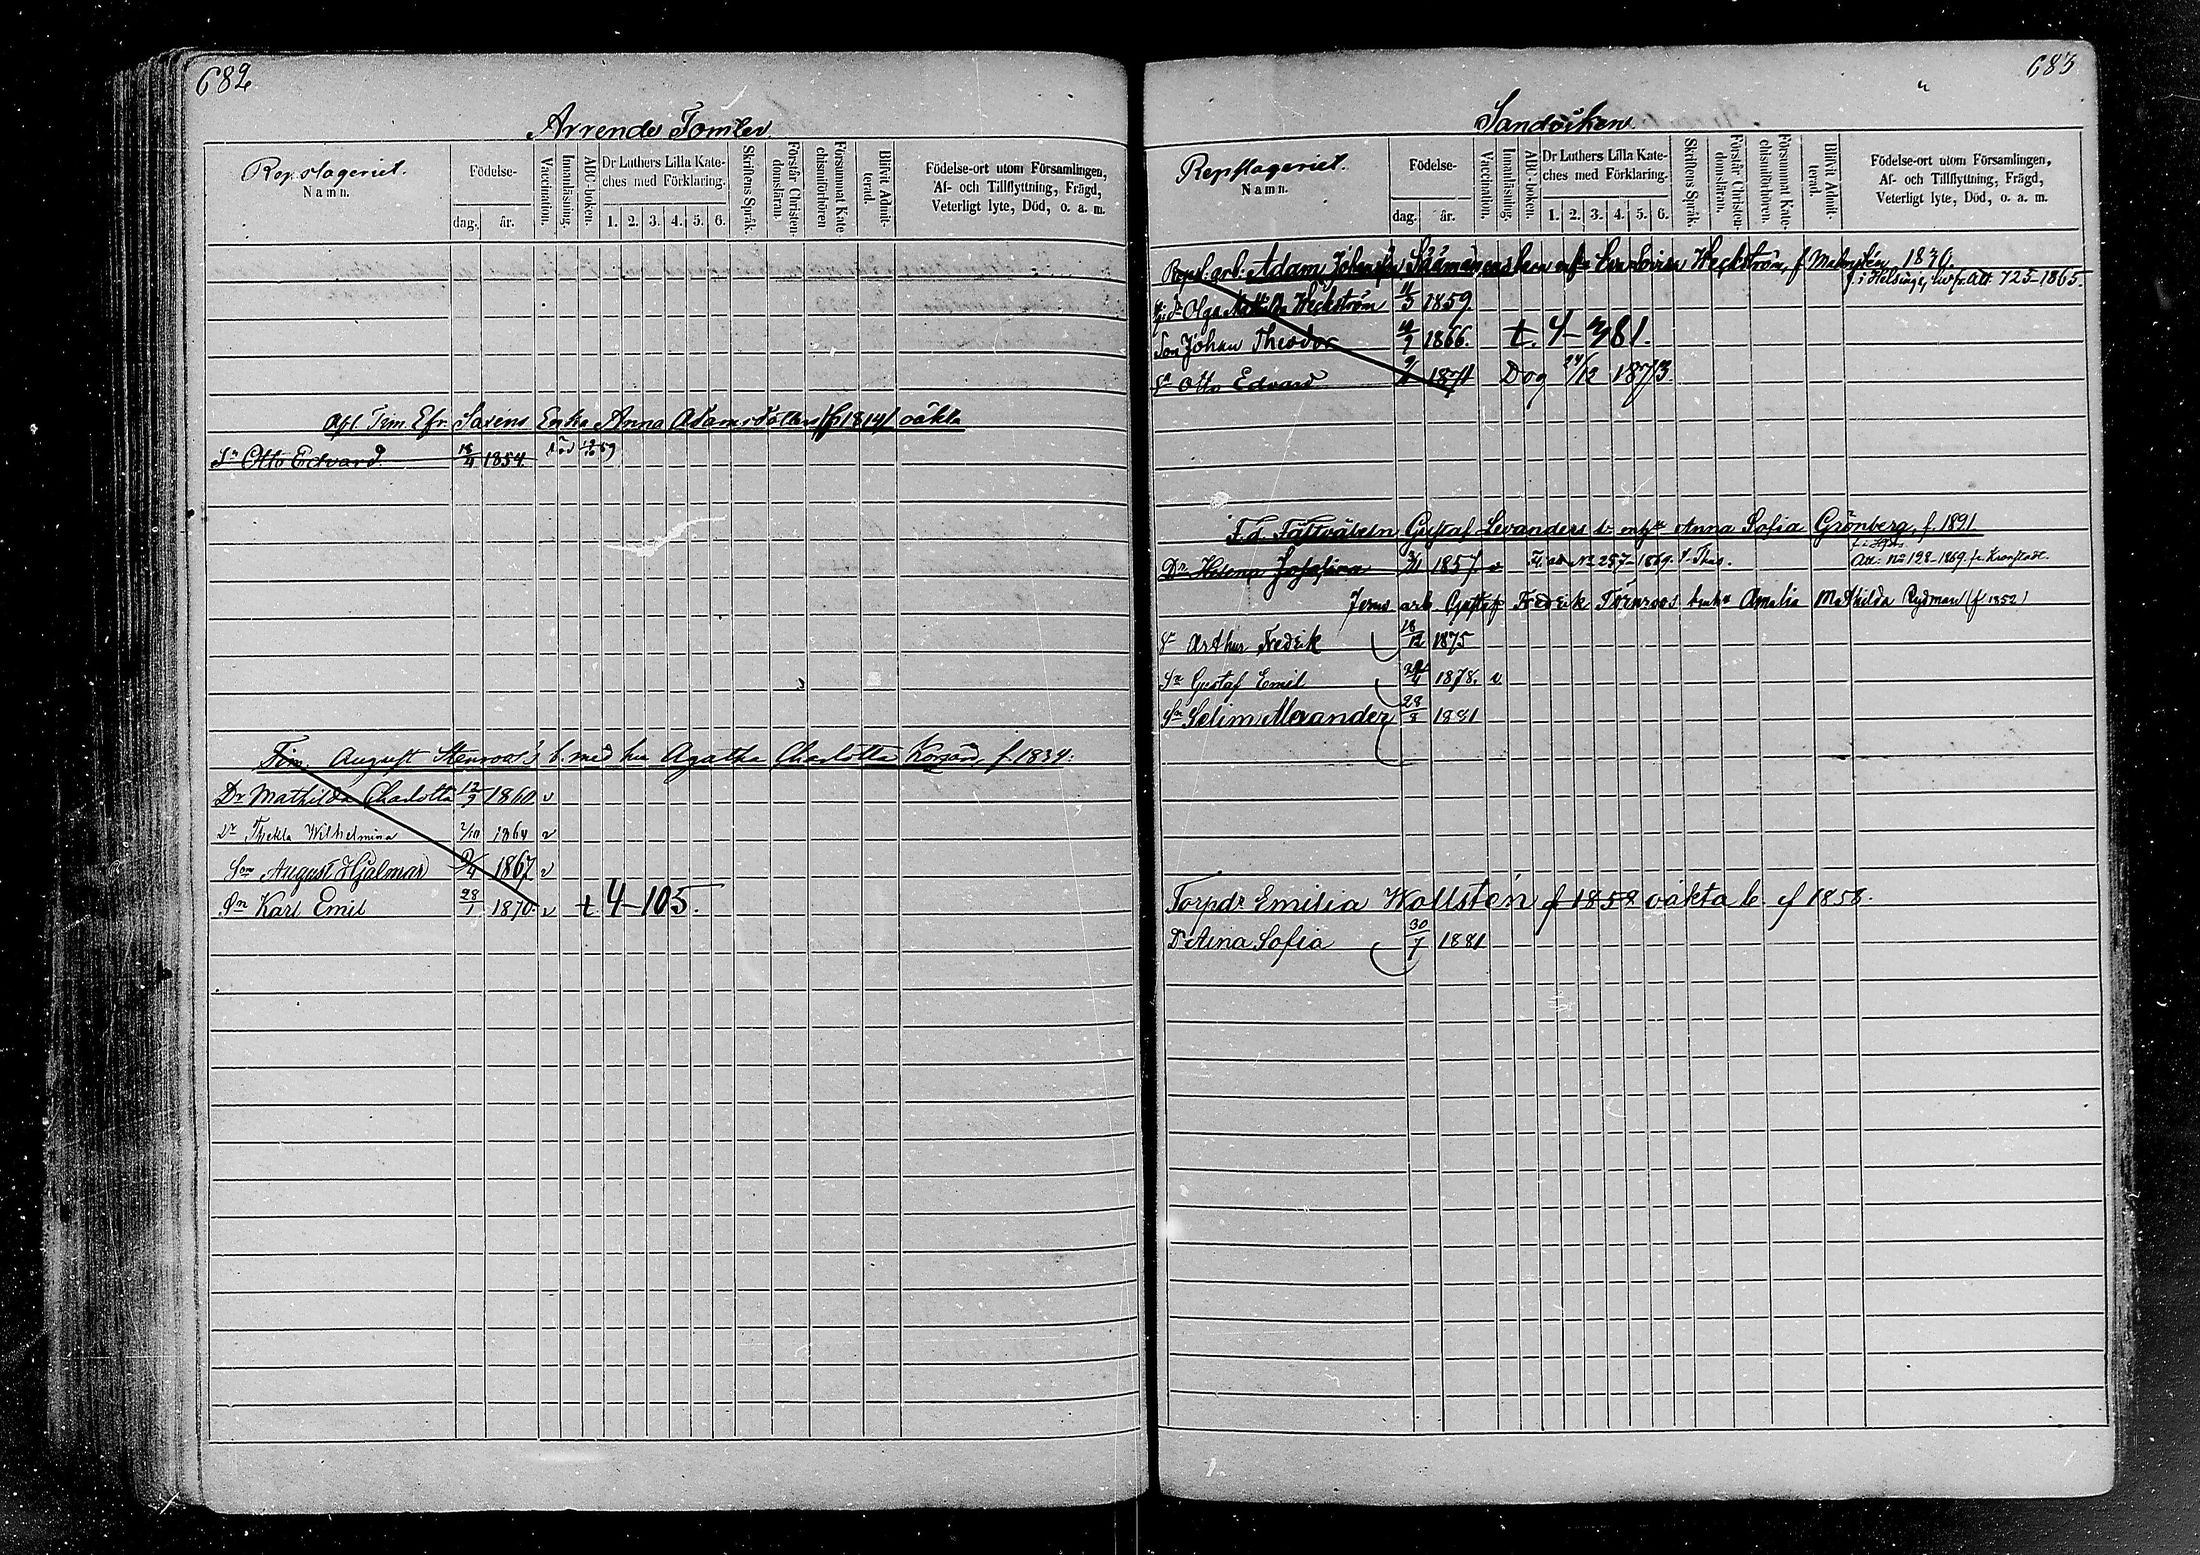 682
Arrende Tomter
Repslageriet.
Namn.
Födelse-
dag. år.
Vaccination.
Innanläsning.
ABC-boken.
Dr Luthers Lilla Kate-
ches med Förklaring.
1. 2. 3. 4. 5. 6.
Skriftens Språk.
Förstår Christen-
domsläran.
Försummat Kate
chismiförhören
Blifvit Admit-
terad.
Födelse-ort utom Församlingen,
Af- och Tillflyttning, Frägd,
Veterligt lyte, Död, o. a. m.
Afl. Tim. Efr. Saxens Enka Anna Adamsdotters (f 1814) oäkta
Sn Otto Edvard 18/4 1854. död 69
Tim. August Stenroos's b. med hu Agatha Charlotta f. 1834.
Dr Mathilda Charlotta 12/9 1860 v
Dr Thekla Wilhelmina 2/10 1864 v
Son August Hjalmar 9/4 1867 v
Sn Karl Emil 28/1 1870 v t. 4-105.
683
Sandviken
Repslageriet.
Namn.
Födelse-
dag. år.
Vaccination.
Innanläsning.
ABC-boken.
Dr Luthers Lilla Kate-
ches med Förklaring.
1. 2. 3. 4. 5. 6.
Skriftens Språk.
Förstår Christen-
domsläran.
Försummat Kate-
chismiförhören.
Blifvit Admit-
terad.
Födelse-ort utom Församlingen,
Af- och Tillflyttning, Frägd,
Veterligt lyte, Död, o. a. m.
Repsl. arb. Adam Heckström, f Malmsten 1830
f. i Helsinge, Att 725-1865.
Olga Mathilda Heckström 1859
Son Johan Theodor 1866. t. 4-781.
Sn Otto Edvard 9 1871 Dog 24/12 1873
F. d. Gustaf Levanders b. Anna Sofia Grönberg, f. 1891
Dr Helena Josefina 1857. v No 257-1869. Att: No 198-1869. fr. Kronstadt.
Jerns arb Gustaf Fredrik Törnroos Amalia Mathilda Rydman (f 1852)
Sn Arthur Fredrik 18/12 1875
Sn Gustaf Emil 1878. v
Sn Selim Alexander 28/8 1881
Torpdr Emilia Wallstén f 1858 oäkta b. f 1858.
Dr Aina Sofia 30/7 1881